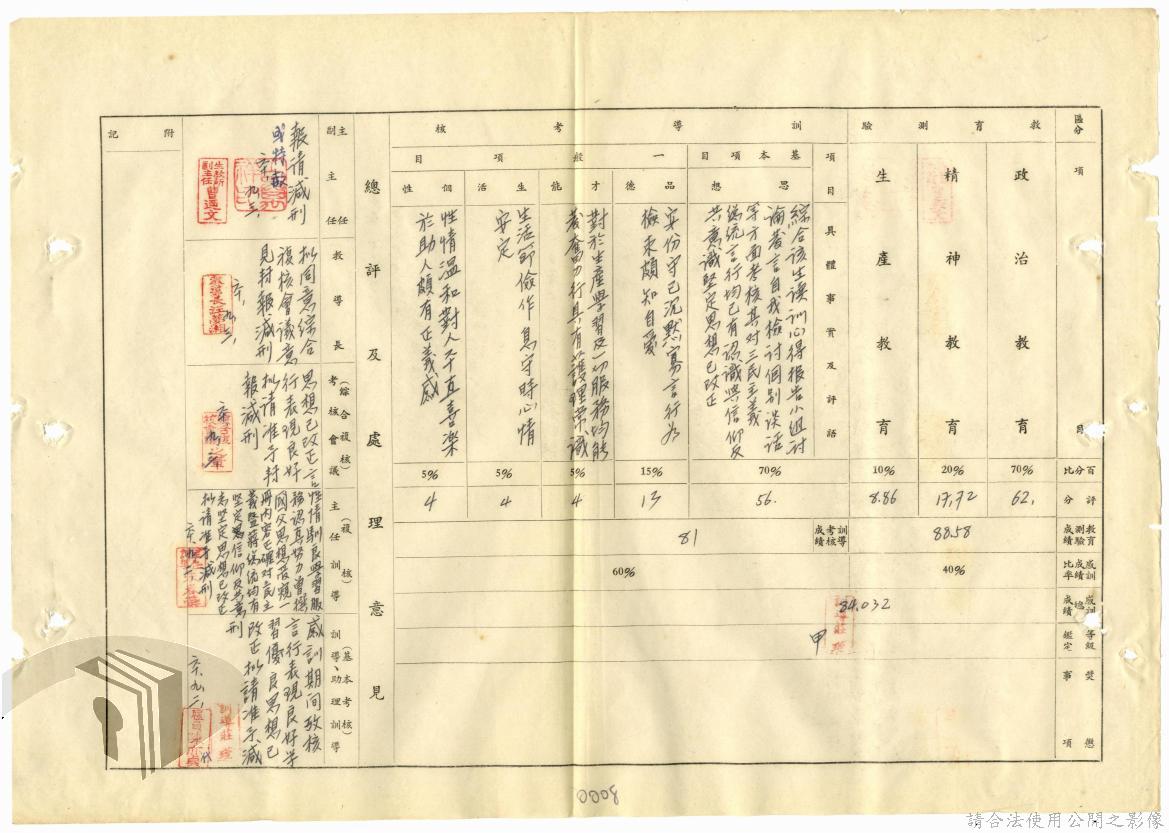 區分
項目
教育測驗
政治教育
精神教育
生產教育
訓導考核
基本項目
一般項目
項目
思想
品德
才能
生活
個性
具體事實及評語
綜合該生讀訓心得報告小組討
論發言自我檢討個別談話
等方面考核其對三民主義
總統言行均已有認識與信仰反
共意識堅定思想已改正
安份守己沉默寡言行為
檢束頗知自愛
對於生產學習及一切服務均能
發奮力行具有護理常識
生活節儉作息守時心情
安定
性情溫和對人平直喜樂
於助人頗有正義感
百分比
70%
20%
10%
70%
15%
5%
5%
5%
評分
62.
17.72
8.86
56.
13
4
4
4
教育測驗成績
88.58
訓導考核成績
81
感訓成績比率
40%
60%
感訓總成績
84.032
等級鑑定
甲
獎懲事項
總評及處理意見
主任
副主任
報請減刑
或特赦
六、九、三、
生教所
副主任
曹適文
教導長
擬同意綜合
複核會議意
見封報減刑
(綜合複核)
考核會議
思想已改正言
行表現良好
擬請准予封
報減刑
(複核)
主任訓導
性情馴良學習服
務認真努力曾撰
國父思想
冊內容正確對民主
義暨蔣總統均有
堅定信仰反共意
志堅定思想已改正
擬請准予減刑
(基本考核)
訓導、助理訓導
感訓期間考核
言行表現良好學
習優良思想已
改正擬請准予減
刑
訓導莊
附記
0008
請合法使用公開之影像